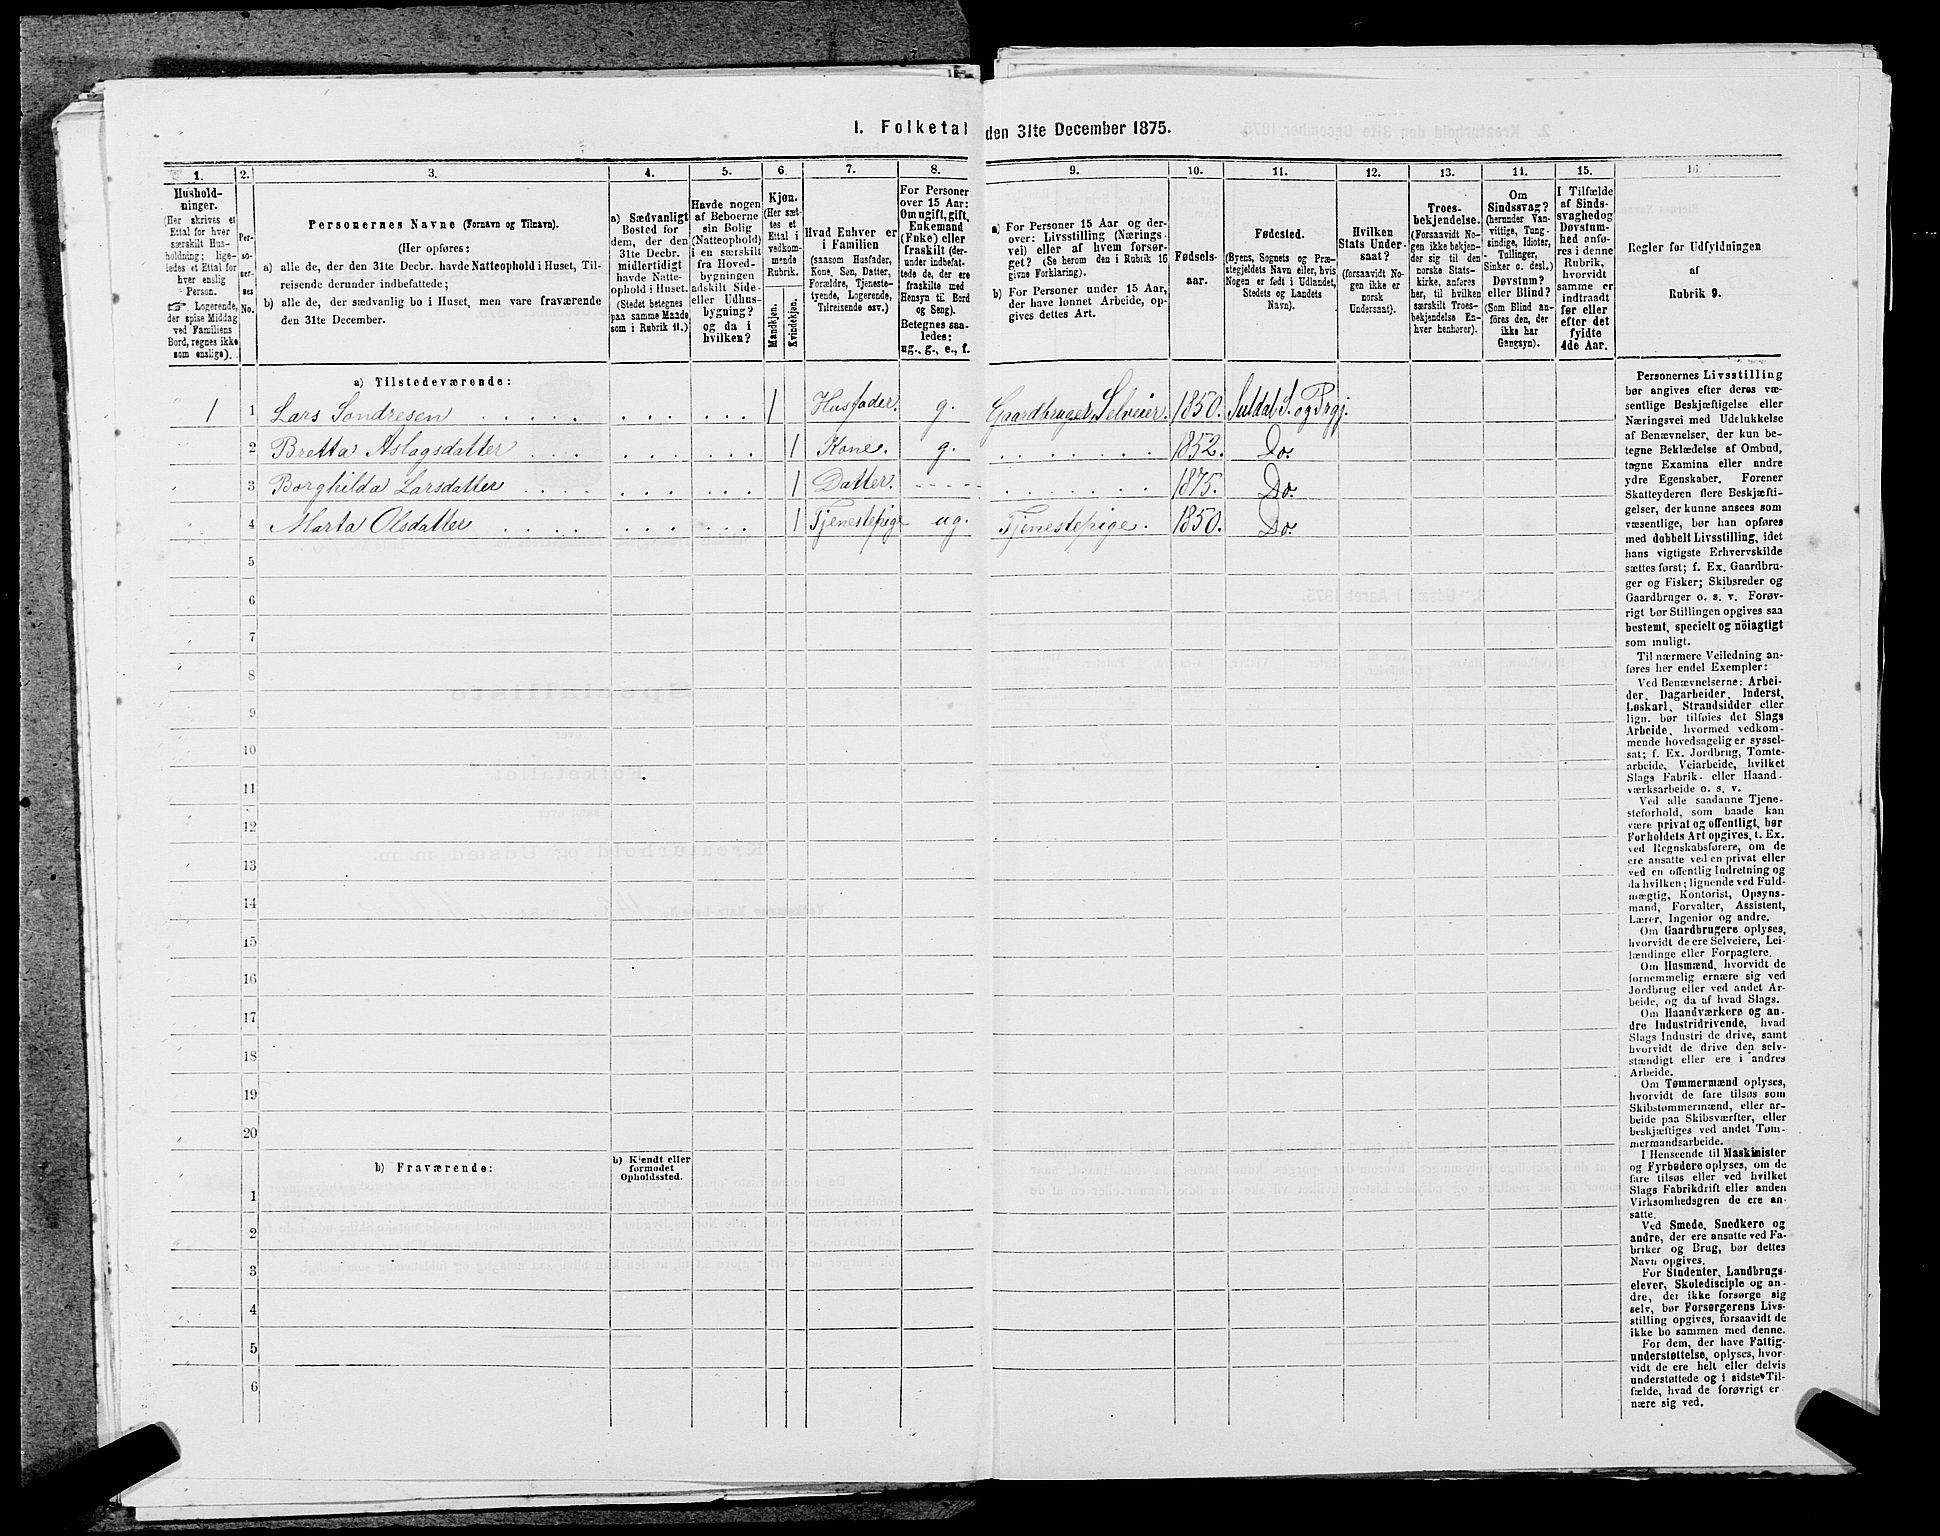 1. Folketal den 31te December 1875.
1.
Hushold-
ninger.
(Her skrives et
Ettal for hver
særskilt Hus-
holdning; lige-
ledes et Ettal for
hver enslig
Person.
☞ Logerende,
der spise Middag
ved Familiens
Bord, regnes ikke
som enslige).
2.
Per-
so-
ner-
nes
No.
3.
Personernes Navne (Fornavn og Tilnavn).
(Her opføres:
a) alle de, der den 31te Decbr. havde Natteophold i Huset, Til-
reisende derunder indbefattede;
b) alle de, der sædvanlig bo i Huset, men vare fraværende
den 31te December.
4.
a) Sædvanligt
Bosted for
dem, der den
31te Decbr.
midlertidigt
havde Natte-
ophold i Huset.
(Stedet betegnes
paa samme Maade
som i Rubrik 11.)
5.
Havde nogen
af Beboerne
sin Bolig
(Natteophold)
i en særskilt
fra Hoved-
bygningen
adskilt Side-
eller Udhus-
bygning?
og da i
hvilken?
6.
Kjøn.
(Her sæt-
tes et
Ettal i
vedkom-
mende
Rubrik.
Mandkjøn.
Kvindekjøn.
7.
Hvad Enhver er
i Familien
(saasom Husfader,
Kone, Søn, Datter,
Forældre, Tjeneste-
tyende, Logerende,
Tilreisende osv.)
8.
For Personer
over 15 Aar:
Om ugift, gift,
Enkemand
(Enke) eller
fraskilt (der-
under indbefat-
tede de, der ere
fraskilte med
Hensyn til Bord
og Seng).
Betegnes saa-
ledes:
ug., g., e., f.
9.
a) For Personer 15 Aar og der-
over: Livsstilling (Nærings-
vei) eller af hvem forsør-
get? (Se herom den i Rubrik 16
givne Forklaring).
b) For Personer under 15 Aar,
der have lønnet Arbeide, op-
gives dettes Art.
10.
Fødsels-
aar.
11.
Fødested.
(Byens, Sognets og Præ-
stegjeldets Navn eller, hvis
Nogen er født i Udlandet,
Stedets og Landets
Navn).
12.
Hvilken
Stats Under-
saat?
(forsaavidt No-
gen ikke er
norsk
Undersaat).
13.
Troes-
bekjendelse.
(Forsaavidt No-
gen ikke bekjen-
der sig til den
norske Stats-
kirke, anføres
her, til hvilken
særskilt Troes-
bekjendelse En-
hver henhører).
14.
Om
Sindssvag?
(herunder Van-
vittige, Tung-
sindige, Idioter,
Tullinger,
Sinker o. desl.)
Døvstum?
eller Blind?
(Som Blind an-
føres den, der
ikke har
Gangsyn).
15.
I Tilfælde
af Sinds-
svaghed og
Døvstum-
hed anfø-
res i denne
Rubrik,
hvorvidt
samme er
indtraadt
før eller
efter det
fyldte
4de Aar.
16.
Regler for Udfyldningen
af
Rubrik 9.
a) Tilstedeværende:
1 1 Lars Sondresen 1 Husfader. g. Gaardbruger, Selveier. 1850. Suldal S. og Prgj.
2 Bretta Aslagsdatter 1 Kone. g. 1852. Do.
3 Borghilda Larsdatter 1 Datter. 1875. Do.
4 Marta Olsdatter 1 Tjenestepige ug. Tjenestepige. 1850. Do.
5
6
7
8
9
10
11
12
13
14
15
16
17
18
19
20
b) Fraværende:
b) Kjendt eller
formodet
Opholdssted.
1
2
3
4
5
6
Personernes Livsstilling
bør angives efter deres væ-
sentlige Beskjæftigelse eller
Næringsvei med Udelukkelse
af Benævnelser, der kun be-
tegne Beklædelse af Ombud,
tagne Examina eller andre
ydre Egenskaber. Forener
Skatteyderen flere Beskjæfti-
gelser, der kunne ansees som
væsentlige, bør han opføres
med dobbelt Livsstilling, idet
hans vigtigste Erhvervskilde
sættes først; f. Ex. Gaardbru-
ger og Fisker; Skibsreder og
Gaardbruger o. s. v. Forøv-
rigt bør Stillingen opgives saa
bestemt, specielt og nöiagtigt
som muligt.
Til nærmere Veiledning an-
føres her endel Exempler:
Ved Benævnelserne: Arbei-
der, Dagarbeider, Inderst,
Løskarl, Strandsidder eller
lign. bør tilføies det Slags
Arbeide, hvormed vedkom-
mende hovedsagelig er syssel-
sat; f. Ex. Jordbrug, Tomte-
arbeide, Veiarbeide, hvilket
Slags Fabrik- eller Haand-
værksarbeide o. s. v.
Ved alle saadanne Tjene-
steforhold, som baade kan
være privat og offentligt, bør
Forholdets Art opgives, t. Ex.
ved Regnskabsførere, om de
ere ansatte ved en privat eller
ved en offentlig Indretning og
da hvilken; lignende ved Fuld-
mægtig, Kontorist, Opsyns-
mand, Forvalter, Assistent,
Lærer, Ingeniør og andre.
Om Gaardbrugere oplyses,
hvorvidt de ere Selveiere, Lei-
lændinge eller Forpagtere.
Om Husmænd, hvorvidt de
fornemmelig ernære sig ved
Jordbrug eller ved andet Ar-
beide, og da af hvad Slags.
Om Haandværkere og an-
dre Industridrivende, hvad
Slags Industri de drive, samt
hvorvidt de drive den selv-
stændigt eller ere i andres
Arbeide.
Om Tømmermænd oplyses,
hvorvidt de fare tilsøs som
Skibstømmermænd, eller ar-
beide paa Skibsværfter, eller
beskjæftiges ved andet Tøm-
mermandsarbeide.
I Henseende til Maskinister
og Fyrbødere oplyses, om de
fare tilsøs eller ved hvilket
Slags Fabrikdrift eller anden
Virksomhedsgren de ere an-
satte.
Ved Smede, Snedkere og
andre, der ere ansatte ved Fa-
briker og Brug, bør dettes
Navn opgives.
For Studenter, Landbrugs-
elever, Skoledisciple og an-
dre, der ikke forsørge sig
selv, bør Forsørgerens Livs-
stilling opgives, forsaavidt de
ikke bo sammen med denne.
For dem, der have Fattig-
understøttelse, oplyses, hvor-
vidt de ere helt eller delvis
understøttede og i sidste Til-
fælde, hvad de forøvrigt er-
nære sig ved.